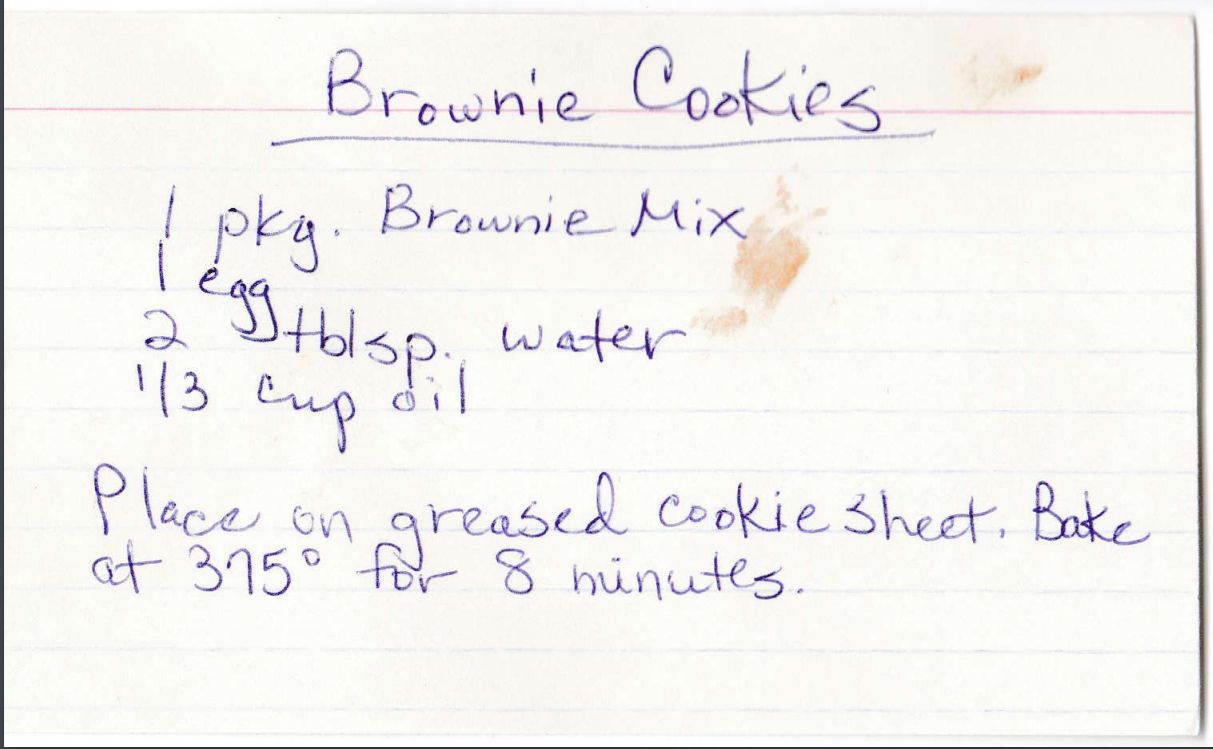 Brownie Cookies
1 pkg. Brownie Mix
1 egg
2 tblsp. water
1/3 cup oil
Place on greased cookie sheet. Bake
at 375° for 8 minutes.